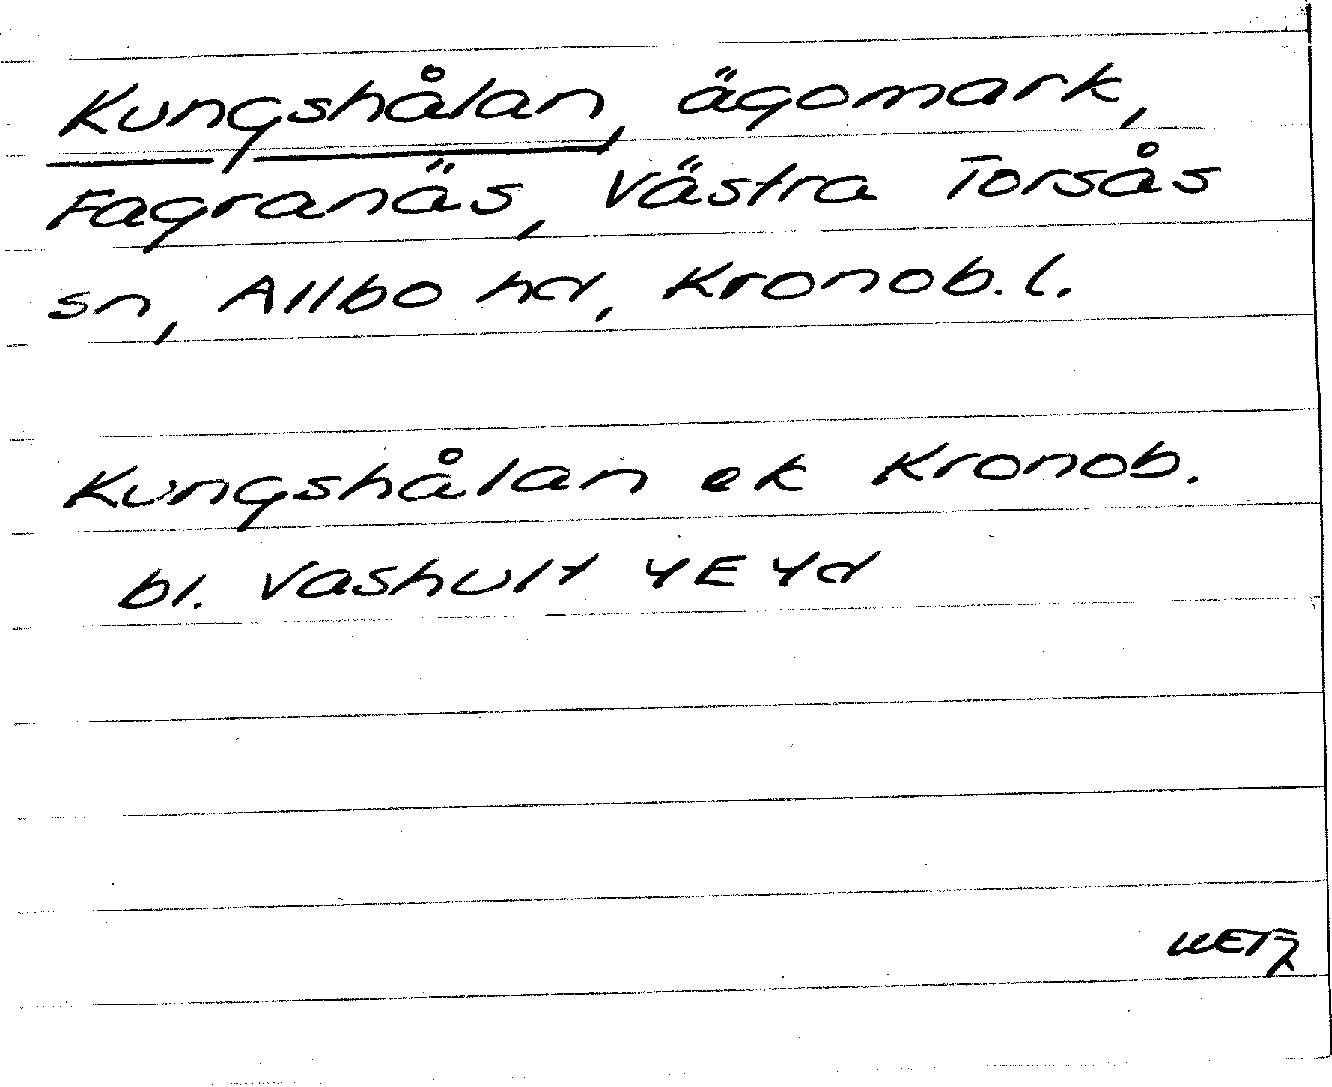 Kungshålan, ägomark,
Fagranäs, Västra Torsås
sn, Allbo hd, Kronob. l.
Kungshålan ek Kronob.
bl. Vashult 4E 4d